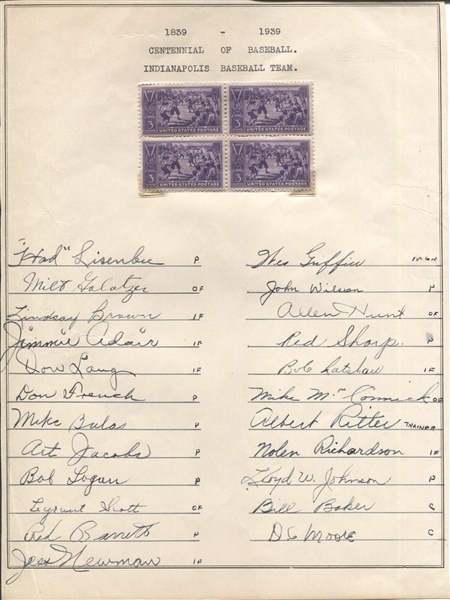 1839 - 1939
CENTENNIAL OF BASEBALL.
INDIANAPOLIS BASEBALL TEAM.
3 UNITED STATES POSTAGE 3 UNITED STATES POSTAGE
3 UNITED STATES POSTAGE 3 UNITED STATES POSTAGE
"Hod" Lisenbee P
Milt Galatzer OF
Lindsay Brown IF
Jimmie Adair IF
Don Lang IF
Don French P
Mike Balas P
Art Jacobs P
Bob Logan P
Legrant Scott OF
Red Barrett P
Jess Newman IN
Wes Griffin MGR
John Wilson P
Allen Hunt OF
Red Sharp P
Bob Latshaw IF
Mike McCormick OF
Albert Ritter TRAINER
Nolen Richardson IF
Lloyd W. Johnson P
Bill Baker C
D C Moore C